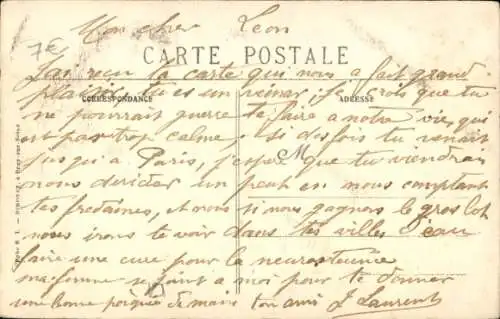 7€
Mon cher Leon
CARTE POSTALE
J'ai reçu la carte qui nous a fait grand
plaisir tu es un veinar, je crois que tu
CORRESPONDANCE
ADRESSE
ne pourrait guerre te faire a notre vie, qui
est par trop calme, si des fois tu venait
M
jusqu'a Paris, j'espère que tu viendrai
nous derider un peut en nous comptant
tes fredaines, et nous si nous gagnons le gros lot
nous irons te voir dans tes villes d'eau
faire une cure pour la
ma femme se joint a moi pour te donner
une bonne poignée de main ton ami J Laurent